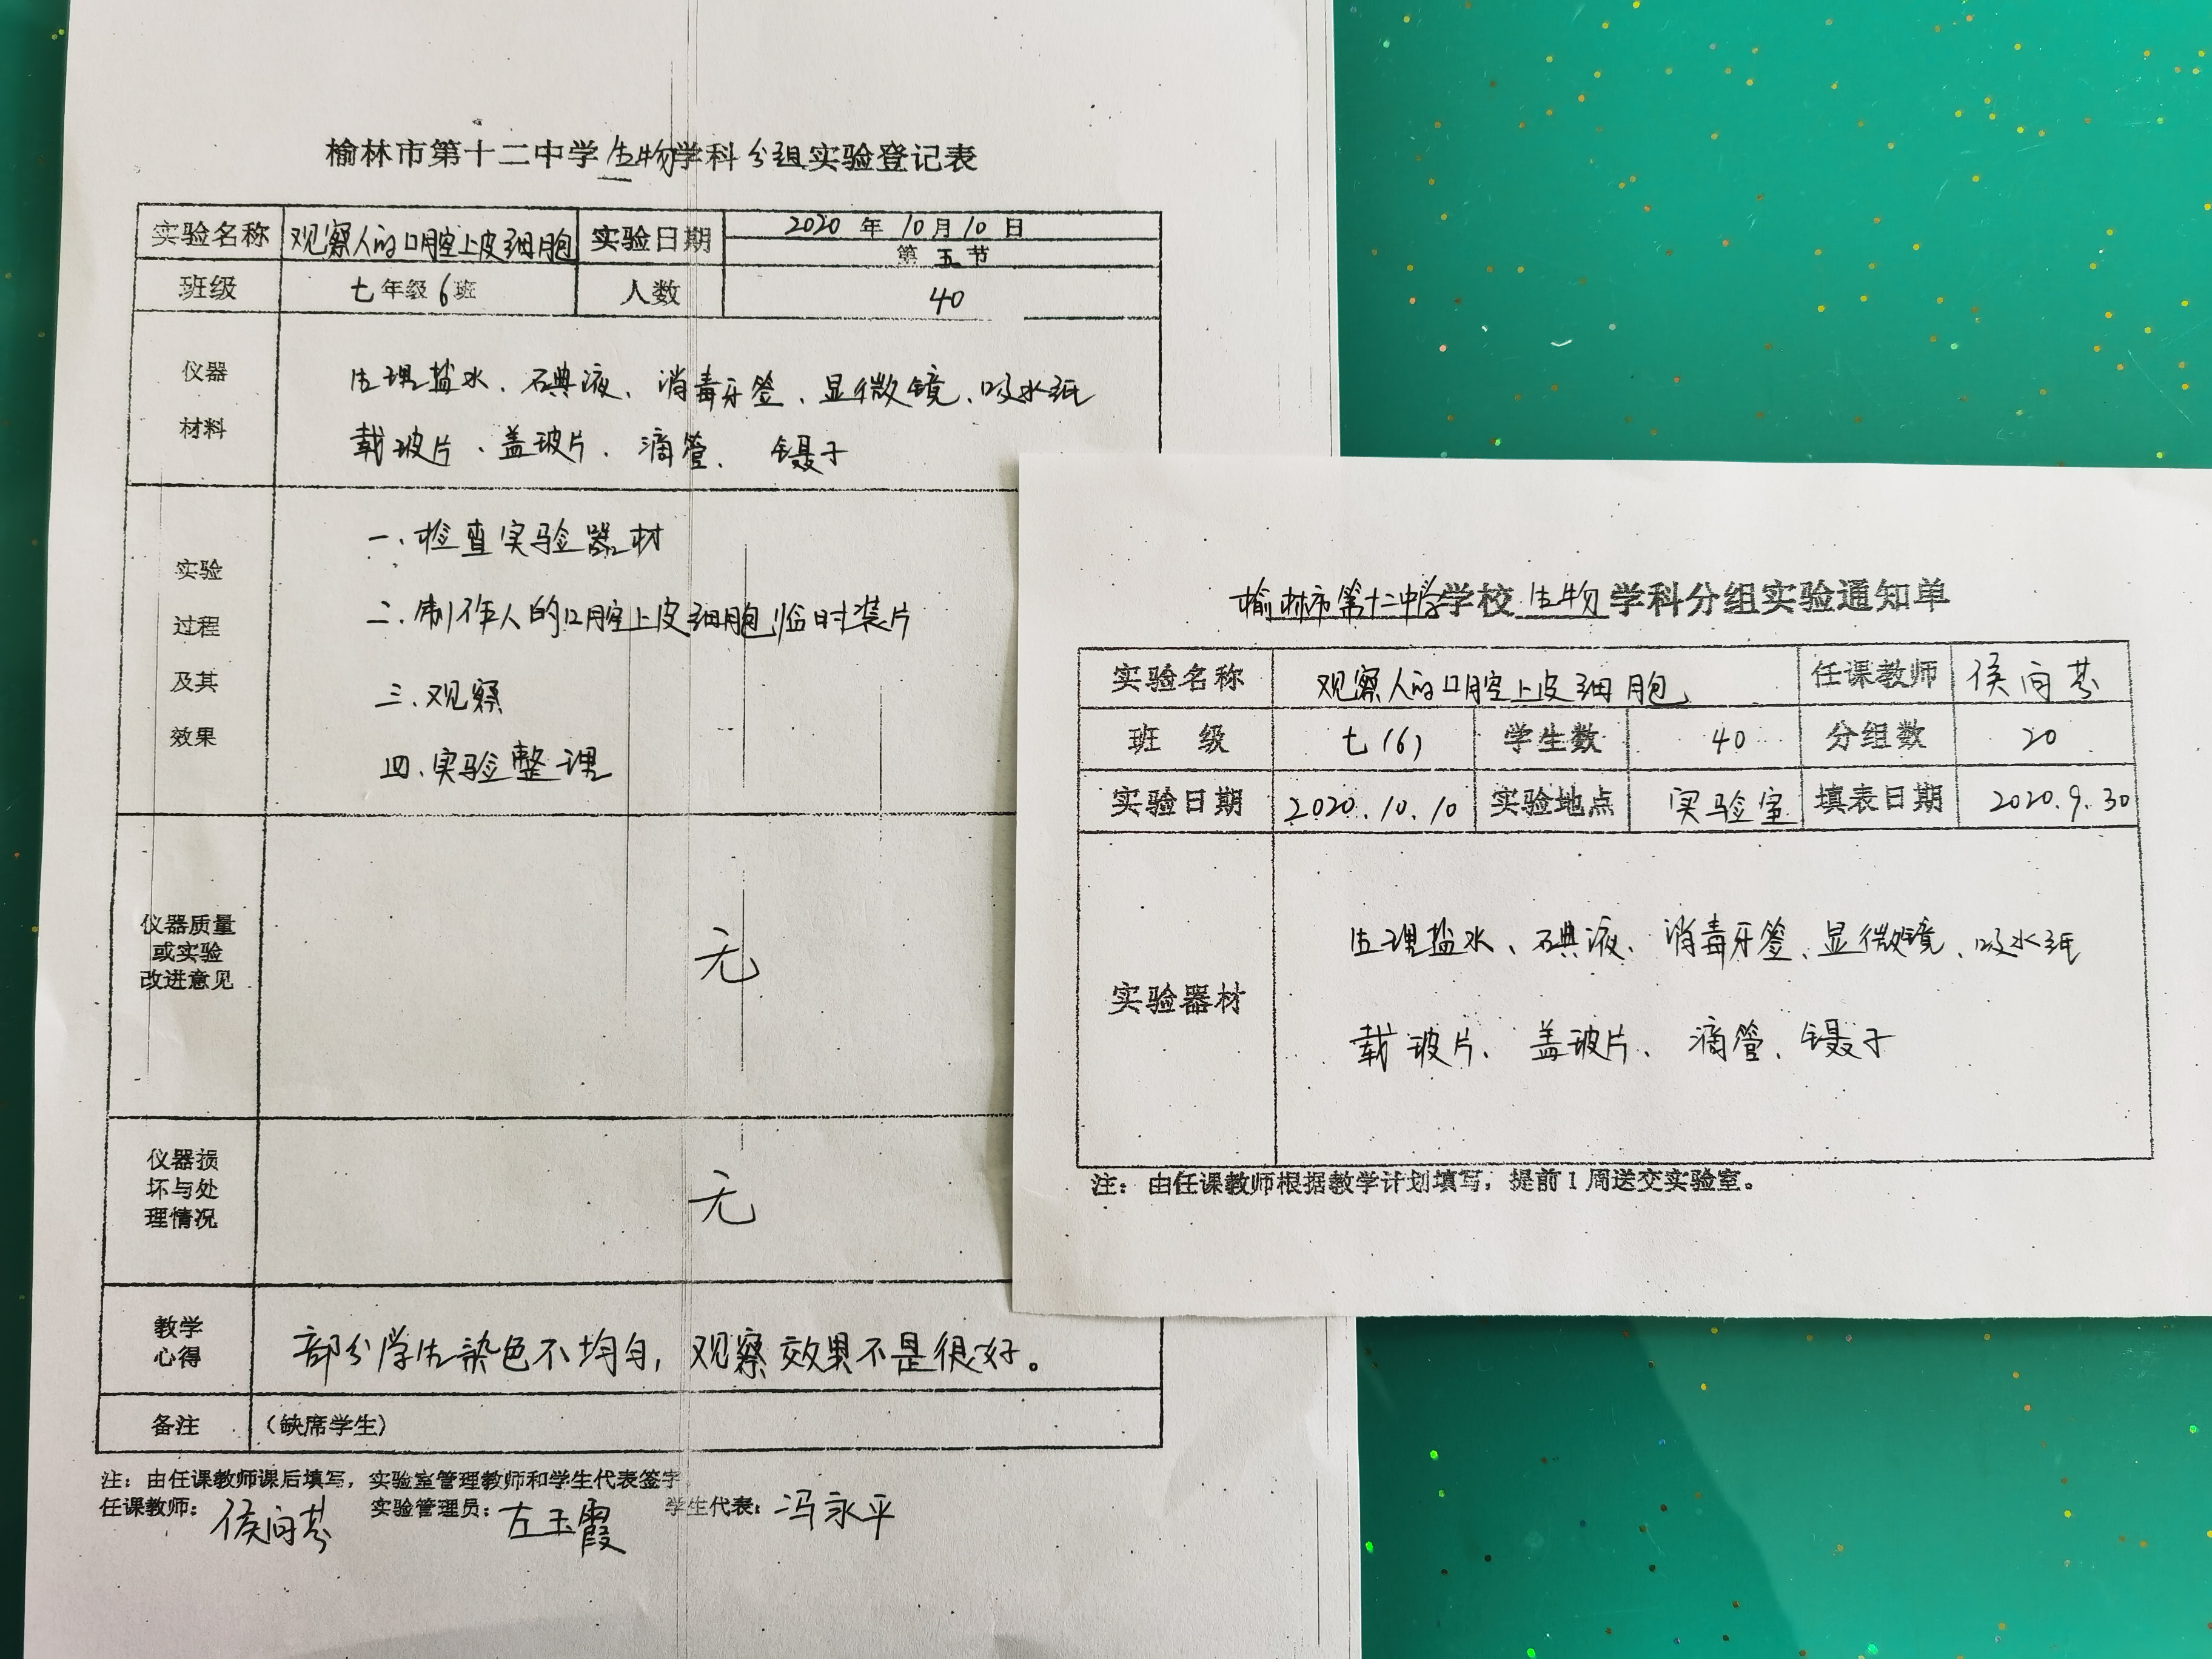 榆林市第十二中学生物学科分组实验登记表
实验名称 观察人的口腔上皮细胞 实验日期 2020年10月10日
第五节
班级 七年级6班 人数 40
仪器
材料
生理盐水、碘液、消毒牙签、显微镜、吸水纸
载玻片、盖玻片、滴管、镊子
实验
过程
及其
效果
一、检查实验器材
二、制作人的口腔上皮细胞临时装片
三、观察
四、实验整理
仪器质量
或实验
改进意见
无
仪器损
坏与处
理情况
无
教学
心得
部分学生染色不均匀,观察效果不是很好。
备注 (缺席学生)
注:由任课教师课后填写,实验室管理教师和学生代表签字
任课教师:侯向芬 实验管理员:左玉霞 学生代表:冯永平
榆林市第十二中学学校生物学科分组实验通知单
实验名称 观察人的口腔上皮细胞 任课教师 侯向芬
班 级 七(6) 学生数 40 分组数 20
实验日期 2020.10.10 实验地点 实验室 填表日期 2020.9.30
实验器材
生理盐水、碘液、消毒牙签、显微镜、吸水纸
载玻片、盖玻片、滴管、镊子
注:由任课教师根据教学计划填写,提前1周送交实验室。